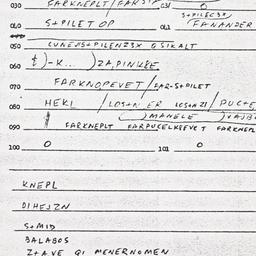 030 FARKNEPLT/FARSI 031 0
S+PILE3X
040 S+PILET OP 041 FANANZER
050 CUNEUS+PILENZ3X QSIKALT
060 )-K... )ZA, PINKKE
070 FARKNOPEVET/ZAR-S+PILET
080 HEKI /LOS+N ER LOS+NZI/PUCTE
090 )MANELE )VAJB
FARKNEPLT FARPUCELKEEVET FARKNEPL
100 0 101 0
KNEPL
DIHEJZN
S+MID
BALABOS
Z+AVE QI MENERNOMEN